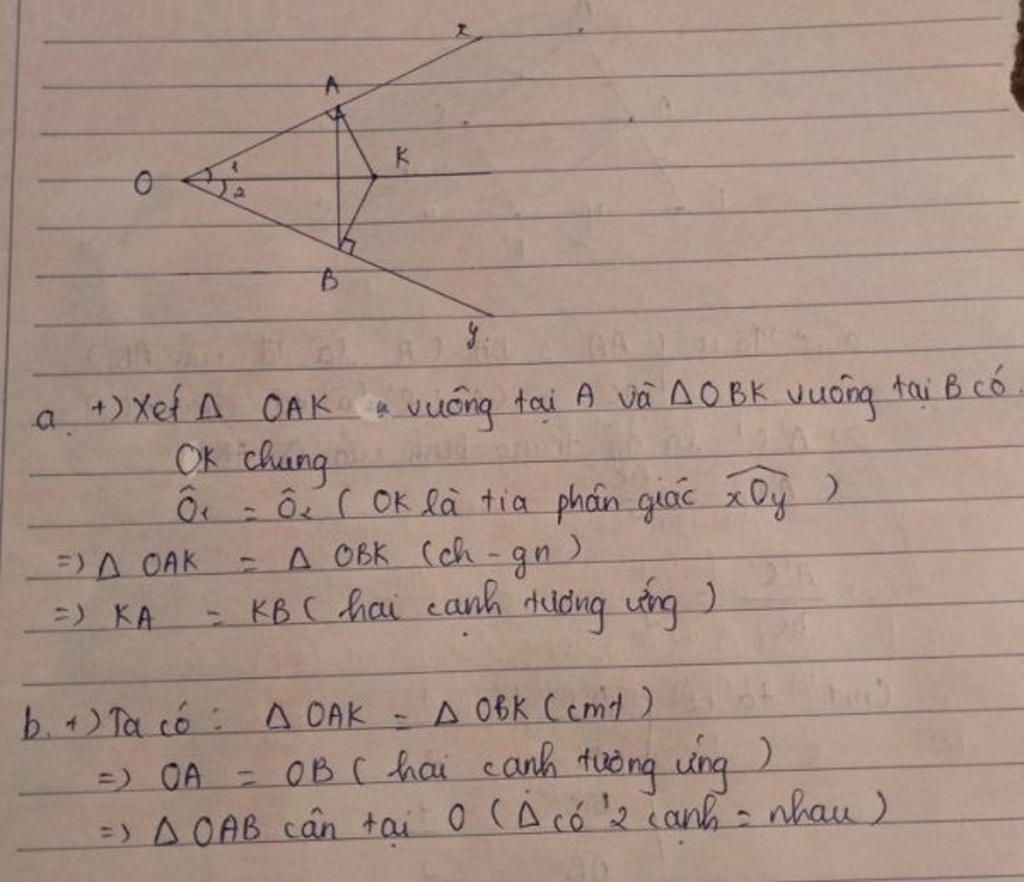 x
A
K
O
1
2
B
y
a. +) Xét Δ OAK vuông tại A và Δ OBK vuông tại B có
OK chung
Ô₁ = Ô₂ ( OK là tia phân giác xOy )
=> Δ OAK = Δ OBK (ch - gn)
=> KA = KB ( hai cạnh tương ứng )
b. +) Ta có : Δ OAK = Δ OBK (cmt)
=> OA = OB ( hai cạnh tương ứng )
=> Δ OAB cân tại O ( Δ có 2 cạnh = nhau )